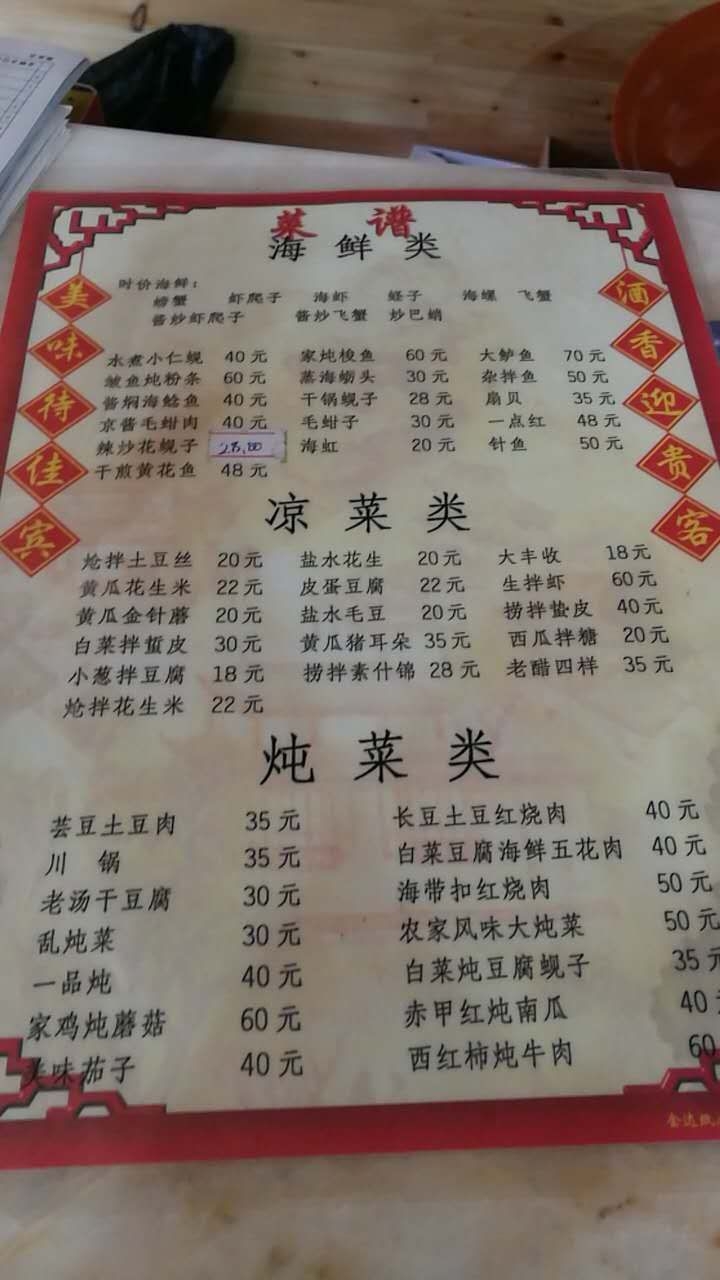 菜 谱
海 鲜 类
时价海鲜：
螃蟹 虾爬子 海虾 蛏子 海螺 飞蟹
酱炒虾爬子 酱炒飞蟹 炒巴蛸
水煮小仁蚬 40元 家炖梭鱼 60元 大鲈鱼 70元
鲅鱼炖粉条 60元 蒸海蛎头 30元 杂拌鱼 50元
酱焖海鲶鱼 40元 干锅蚬子 28元 扇贝 35元
京酱毛蚶肉 40元 毛蚶子 30元 一点红 48元
辣炒花蚬子 28.00 海虹 20元 针鱼 50元
干煎黄花鱼 48元
美味待佳宾
酒香迎贵客
凉 菜 类
炝拌土豆丝 20元 盐水花生 20元 大丰收 18元
黄瓜花生米 22元 皮蛋豆腐 22元 生拌虾 60元
黄瓜金针蘑 20元 盐水毛豆 20元 捞拌蛰皮 40元
白菜拌蜇皮 30元 黄瓜猪耳朵 35元 西瓜拌糖 20元
小葱拌豆腐 18元 捞拌素什锦 28元 老醋四样 35元
炝拌花生米 22元
炖 菜 类
芸豆土豆肉 35元 长豆土豆红烧肉 40元
川 锅 35元 白菜豆腐海鲜五花肉 40元
老汤干豆腐 30元 海带扣红烧肉 50元
乱炖菜 30元 农家风味大炖菜 50元
一品炖 40元 白菜炖豆腐蚬子 35元
家鸡炖蘑菇 60元 赤甲红炖南瓜 40
美味茄子 40元 西红柿炖牛肉 60